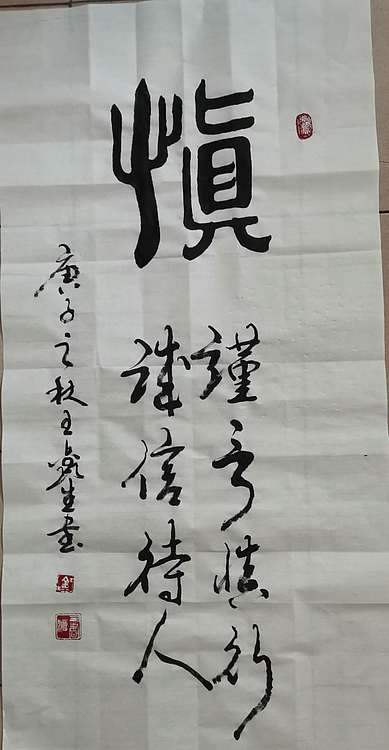 慎
谨言慎行
诚信待人
庚子之秋王生書